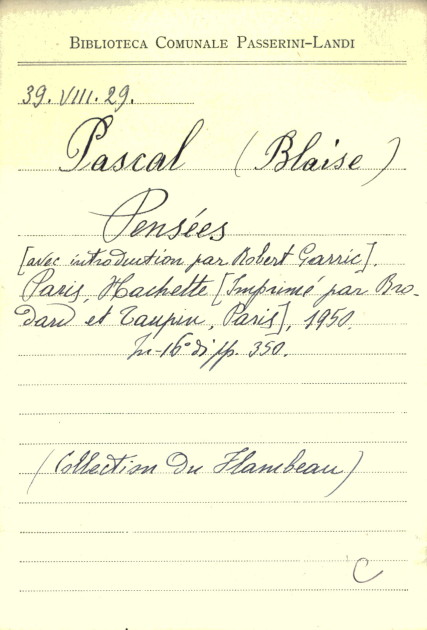 BIBLIOTECA COMUNALE PASSERINI-LANDI
39. VIII. 29.
Pascal (Blaise)
Pensées
[avec introduction par Robert Garric].
Paris, Hachette [Imprimé par Bro-
dard et Taupin, Paris], 1950.
In-16° di pp. 350.
(Collection du Flambeau)
C